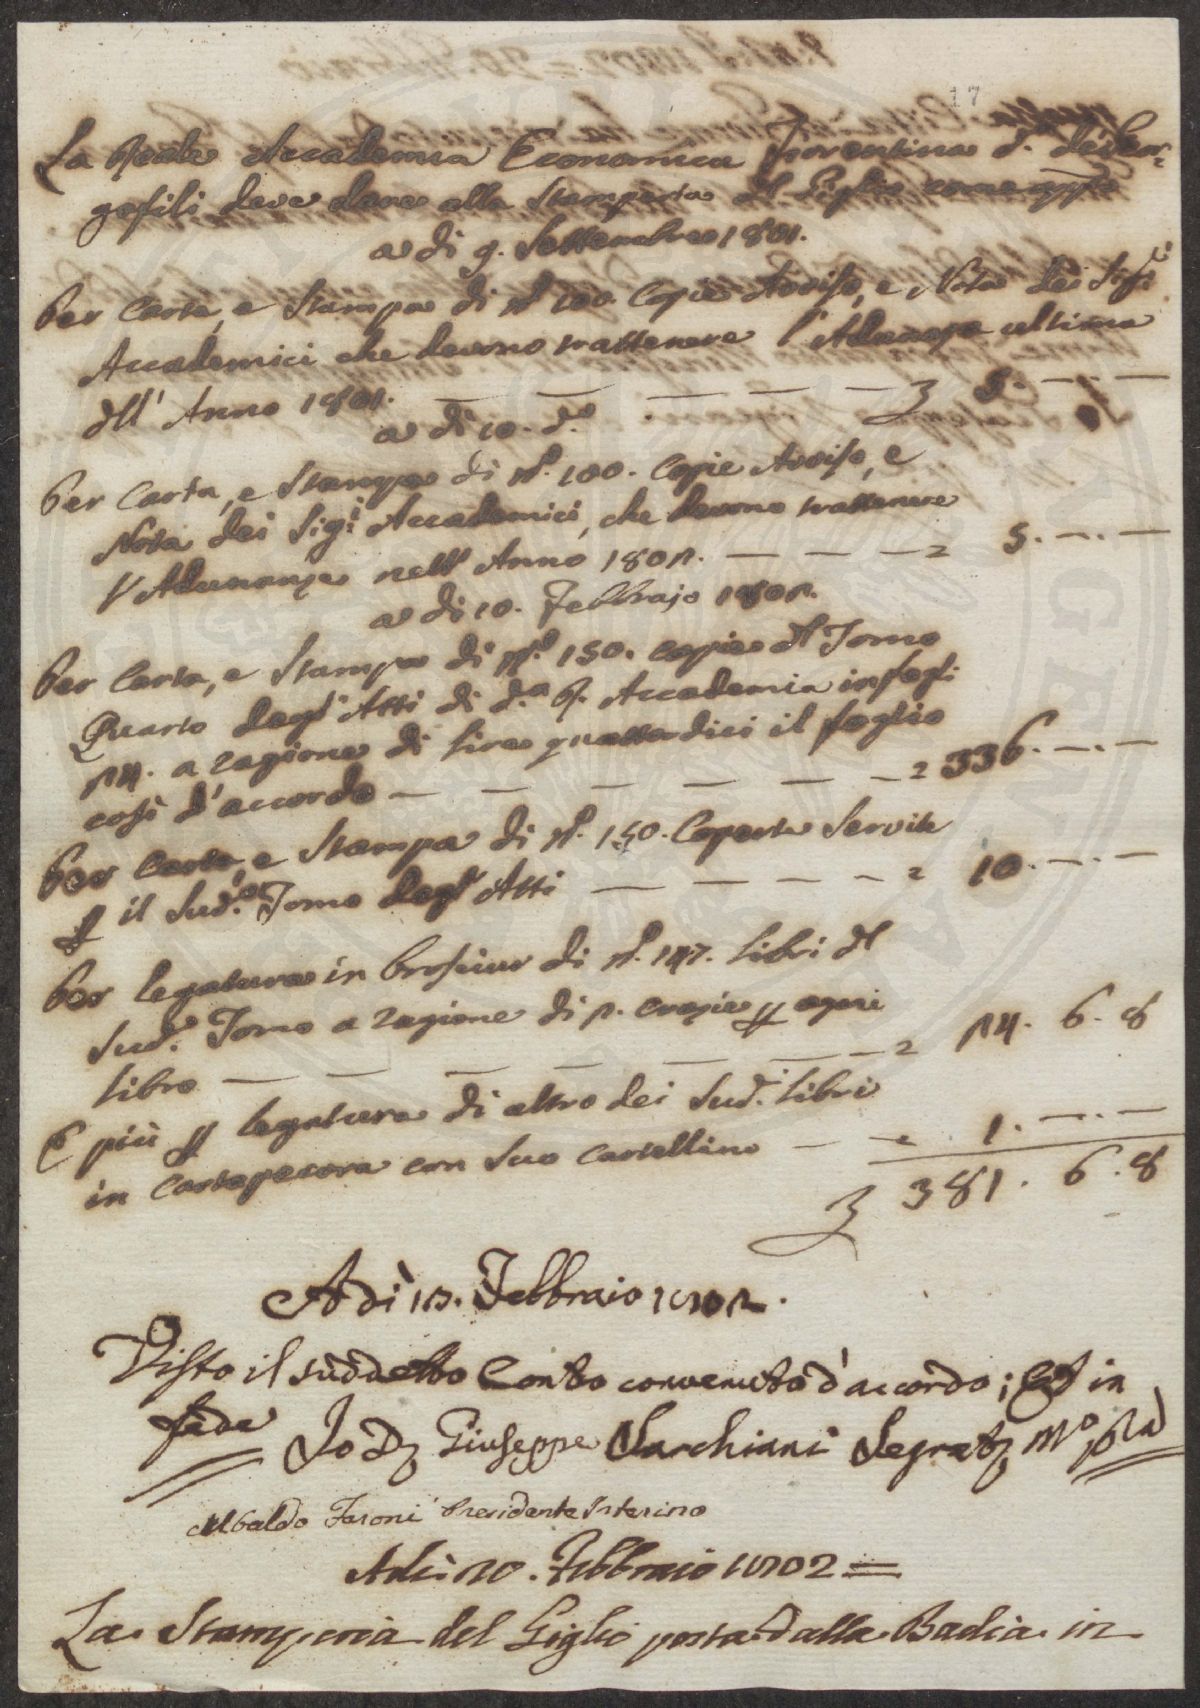 17
La Reale Accademia Economica Fiorentina d. dei Geor-
gofili deve dare alla Stamperia del Giglio come app.o
a di 9. Settembre 1801.
Per Carta, e Stampa di N.o 100. Copie Avviso, e Nota dei Sigg.i
Accademici che devono trattenere l'Adunanza ultima
dell' Anno 1801. — — — — — 5. —. —
a di 10. d.o
Per Carta, e Stampa di N.o 100. Copie Avviso, e
Nota dei Sig.i Accademici, che devono trattenere
l'Adunanze nell' Anno 1802. — — — = 5. —. —
a di 10. Febbrajo 1802.
Per Carta, e Stampa di N.o 150. copie del Tomo
Quarto degl' Atti di d.a R. Accademia in fogli
24. a ragione di lire quattordici il foglio
così d'accordo — — — — — = 336. —. —
Per Carta, e Stampa di N.o 150. Coperte Servite
p il Sud.o Tomo degl' Atti — — — — = 10. —. —
Per legatura in brosciur di N.o 147. libri del
Sud.o Tomo a ragione di 2. crazie p ogni
libro — — — — — — = 24. 6. 8
E più p legatura di altro dei Sud.i libri
in Cartapecora con Suo Cartellino — = 1. —. —
381. 6. 8
Adì 12. Febbraio 1802.
Visto il suddetto Conto convenuto d'accordo; et in
fede Io D. Giuseppe Sarchiani Segret. m.o pp.a
Ubaldo Feroni Presidente Interino
Adì: 20. Febbraio 1802 =
La Stamperia del Giglio posta dalla Badia in